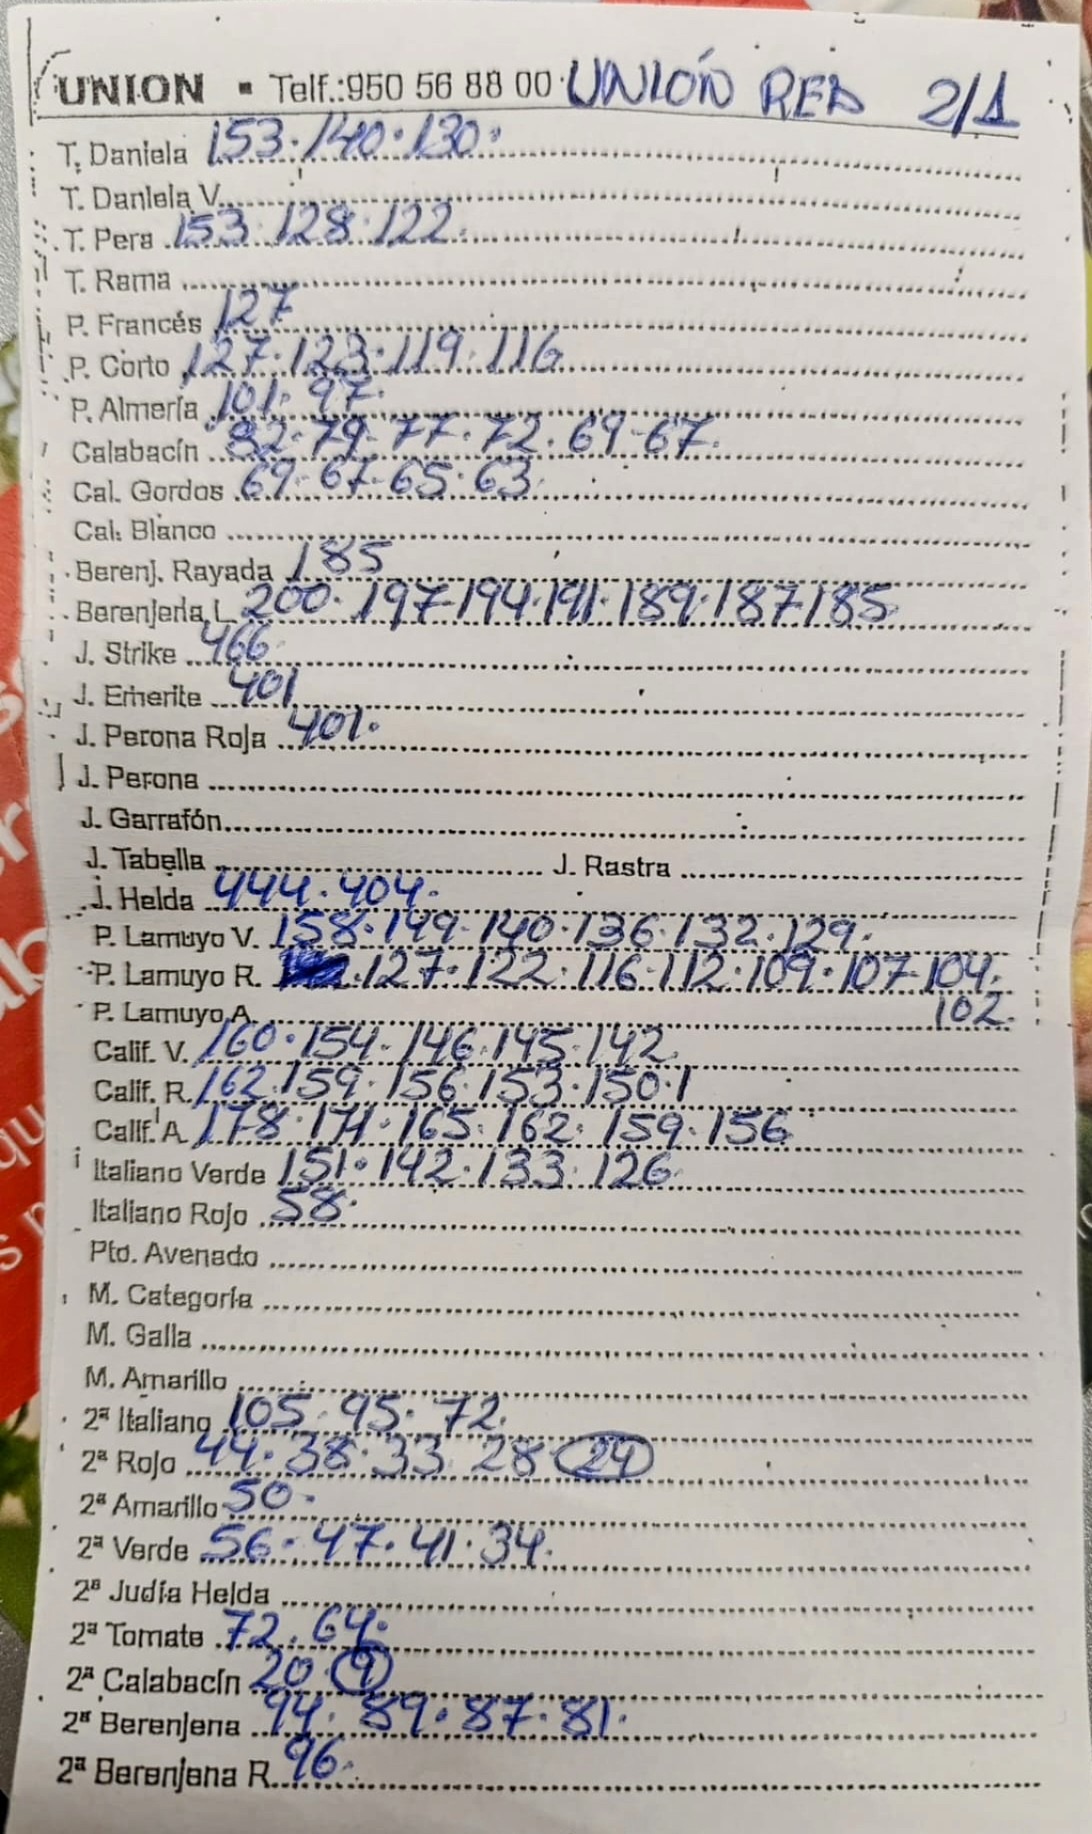 UNION ▪ Telf.:950 56 88 00 UNIÓN RED 2/1
T. Daniela 153. 140. 130.
T. Daniela V.
T. Pera 153. 128. 122.
T. Rama
P. Francés 127
P. Corto 127. 123. 119. 116
P. Almería 101. 97.
Calabacín 82. 79- 77. 72. 69-67.
Cal. Gordos 69. 67-65. 63
Cal. Blanco
Berenj. Rayada 185
Berenjena L. 200. 197-194.191.189.187.185
J. Strike 466
J. Emerite 401
J. Perona Roja 401.
J. Perona
J. Garrafón
J. Tabella J. Rastra
J. Helda 444. 404.
P. Lamuyo V. 158.149.140.136.132.129.
P. Lamuyo R. .127.122.116.112.109.107-104.
102.
P. Lamuyo A.
Calif. V. 160.154-146.145.142
Calif. R. 162.159.156.153.150.1
Calif. A. 178.171.165.162.159.156
Italiano Verde 151.142.133.126
Italiano Rojo 58.
Pto. Avenado
M. Categoría
M. Galia
M. Amarillo
2ª Italiano 105. 95. 72.
2ª Rojo 44. 38. 33. 28 24
2ª Amarillo 50.
2ª Verde 56. 47. 41. 34.
2ª Judía Helda
2ª Tomate 72. 64.
2ª Calabacín 20. 9
2ª Berenjena 94. 89. 87. 81.
2ª Berenjena R. 96.